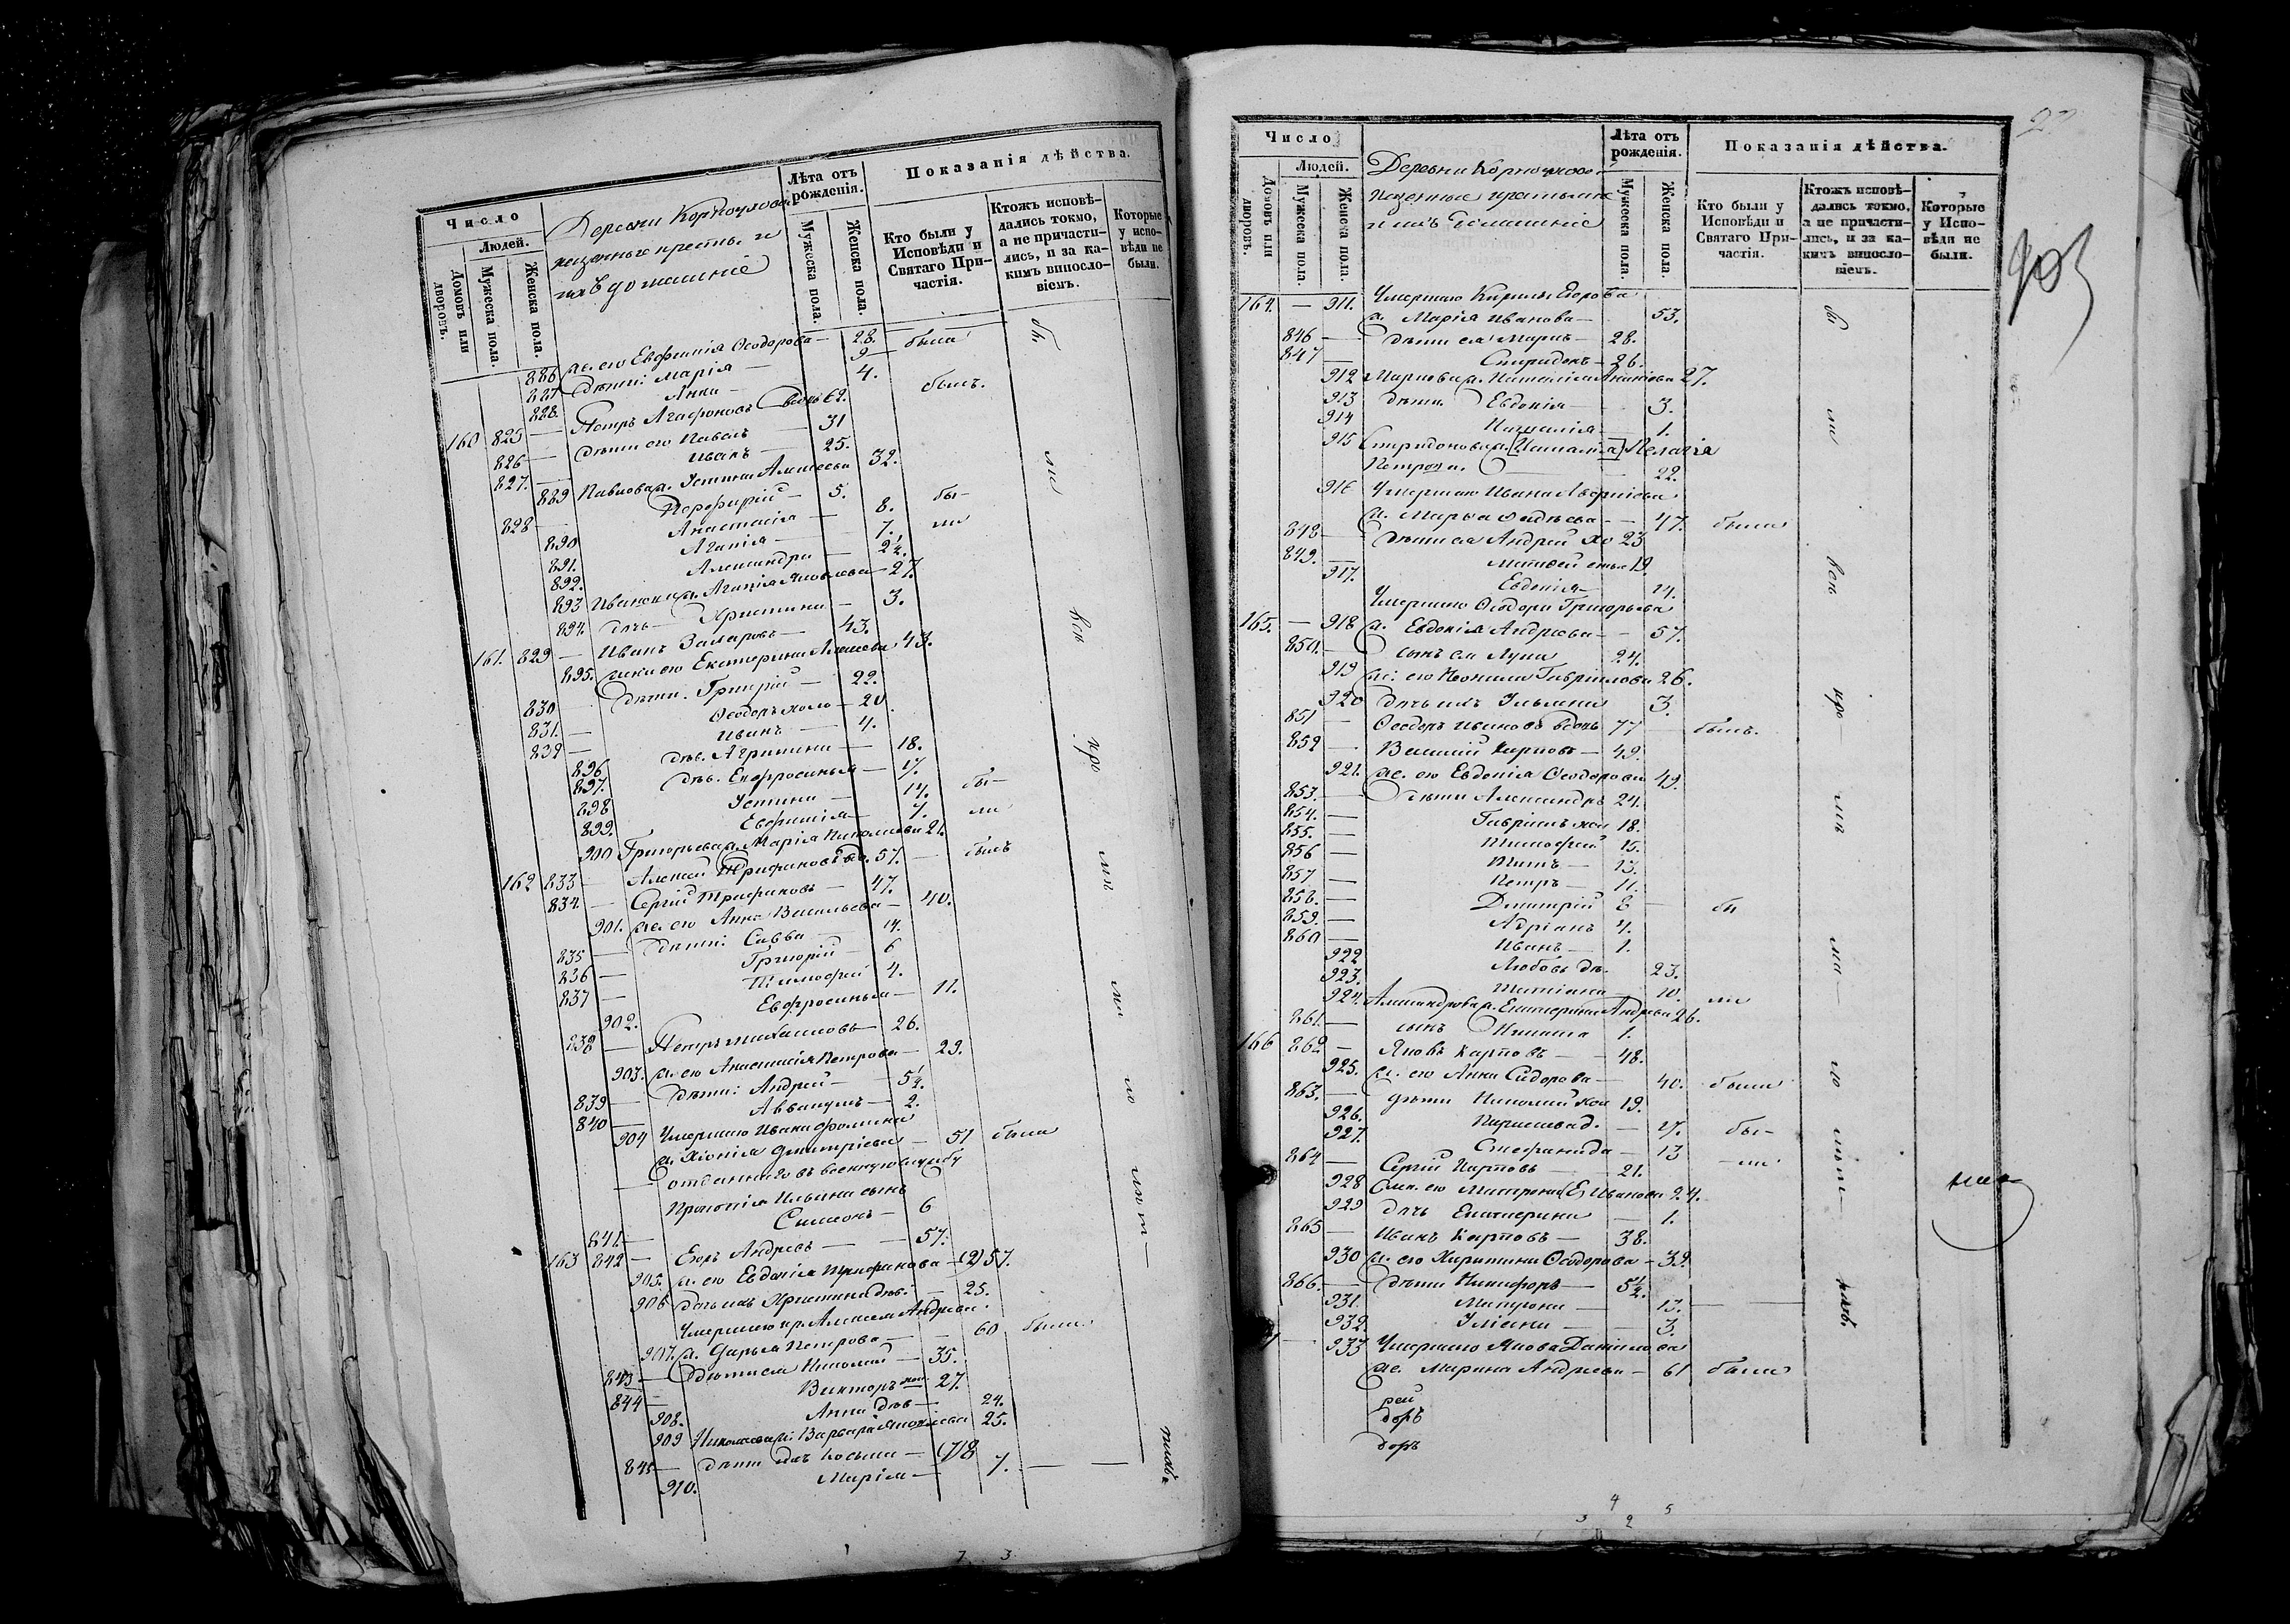 Число
Людей.
Домовъ или дворовъ.
Мужеска пола.
Женска пола.
Деревни Корноухова
казенные крестьяне и
ихъ домашніе
Лѣта отъ рожденія.
Мужеска пола.
Женска пола.
Показанія дѣйства.
Кто были у Исповѣди и Святаго Причастія.
Ктожъ исповѣдались токмо, а не причастились, и за какимъ винословіемъ.
Которые у исповѣди не были.
886 ж. его Евфимія Ѳеодорова — 28. была
887 дѣти: Марія — 9
888. Анна — 4.
160 825 — Петръ Агафоновъ вдовъ 62. былъ.
826 — дѣти его Павелъ 31
827. — Иванъ 25.
889 Павлова ж. Устина Алексеева 32.
828 — Порфирій — 5.
890 Анастасія — 8. бы-
891. Агапія — 7. ли
892. Александра — 2½.
893 Иванова ж. Агапія Яковлева 27.
894. дочь Христина — 3.
161. 829 — Иванъ Захаровъ — 43.
895. жена его Екатерина Алексеева 43.
830 — дѣти. Григорій — 22.
831. — Ѳеодоръ холо — 20
832 — Иванъ — 4.
896 дѣв. Агрипина — 18.
897. дѣв. Евфросинья — 17.
898 Устина — 14. бы-
899. Евфимія — 7. ли
900 Григорьева ж. Марія Николаева 21.
162 833 — Алексей Трифоновъ вдо. 57. — былъ
834. — Сергій Трифоновъ — 47.
901. ж. его Анна Васильева — 40.
835 — дѣти: Савва — 14.
836 — Григорій — 6
837 — Тимофей 4.
902. Евфросинья — 11.
838 — Петръ Михаиловъ — 26.
903. ж. его Анастасія Петрова — 29.
839 — дѣти: Андрей — 5½.
840 — Аввакумъ — 2.
904 Умершаго Ивана Фомина
ж. Хіонія Димитріева — 51 была
отданнаго въ военную службу
Прокопія Ильина сынъ
841. — Симеонъ — 6
163 842 — Егоръ Андреевъ — 57.
905. ж. его Евдокія Трифонова — (2) 57.
906 дочь ихъ Христина дѣв. — 25.
Умершаго кр. Алексея Андреева
907. ж. Дарья Петрова — 60 была
843 — дѣти ея Николай — 35.
844 — Викторъ хол. 27.
908. Анна дѣв — 24.
909 Николаева ж. Варвара Яковлева 25.
845 — дѣти ихъ Косьма — (7) 8
910. Марія — 7. — —
бы
ли
всѣ
кро
мѣ
ма
ло
лѣт—
нихъ
Число
Людей.
Домовъ или дворовъ.
Мужеска пола.
Женска пола.
Деревни Корноухова
казенные крестьяне
и ихъ домашніе
Лѣта отъ рожденія.
Мужеска пола.
Женска пола.
Показанія дѣйства.
Кто были у Исповѣди и Святаго Причастія.
Ктожъ исповѣдались токмо, а не причастились, и за какимъ винословіемъ.
Которые у Исповѣди не были.
164. — 911. Умершаго Кирила Егорова
ж. Марія Иванова — 53.
846 — дѣти ея Марко — 28.
847 — Спиридонъ — 26.
912 Маркова ж. Наталія 27.
913 дѣти. Евдокія — 3.
914 Наталія — 1.
915 Спиридонова ж. [Наталія] Пелагія
Петрова. 22.
916 Умершаго Ивана
ж. Марья — 47. была
848 — дѣти ея Андрей хо 23
849. — Матвей 19.
917. Евдокія — 14.
Умершаго Ѳеодора Григорьева
165. — 918 ж. Евдокія Андреева — 57.
850. — сынъ ея Лука 24.
919 ж. его Неонила Гавріилова 26.
920 дочь ихъ Ульяна 3.
851 — Ѳеодоръ Ивановъ вдовъ 77 — былъ.
852 — Василій Карповъ — 49.
921. ж. его Евдокія Ѳеодорова 49.
853. — дѣти Александръ 24.
854. — Гавріилъ хол 18.
855. — Тимофей 15.
856 — Титъ — 13.
857 — Петръ — 11.
858. — Димитрій 8 — бы
859. — Адріанъ 4.
860 — Иванъ — 1.
922 Любовь дѣ. 23.
923. Татіана — 10. ли
924. Александрова ж. Екатерина Андреева 26.
861. — сынъ 1.
166 862 — Яковъ Карповъ — 48.
925. ж. его Анна Сидорова — 40. была
863. — дѣти Николай хол 19.
926. д. — 17. бы-
927. Стефанида — 13 — ли
864 — Сергій Карповъ — 21.
928 ж. его Матрона (Е) Иванова 24.
929 дочь Екатерина — 1.
865 — Иванъ Карповъ — 38.
930 ж. его Харитина Ѳеодорова — 39.
866. — дѣти Никифоръ — 5½.
931. Матрона — 13. —
932. Ульяна — 3.
— 933 Умершаго Якова Данилова
ж. Марина Андреева — 61 была
рей
доръ
доръ
бы
ли
всѣ
кро—
мѣ
ма—
ло
лѣт—
нихъ.
4
3 2 5
7 3